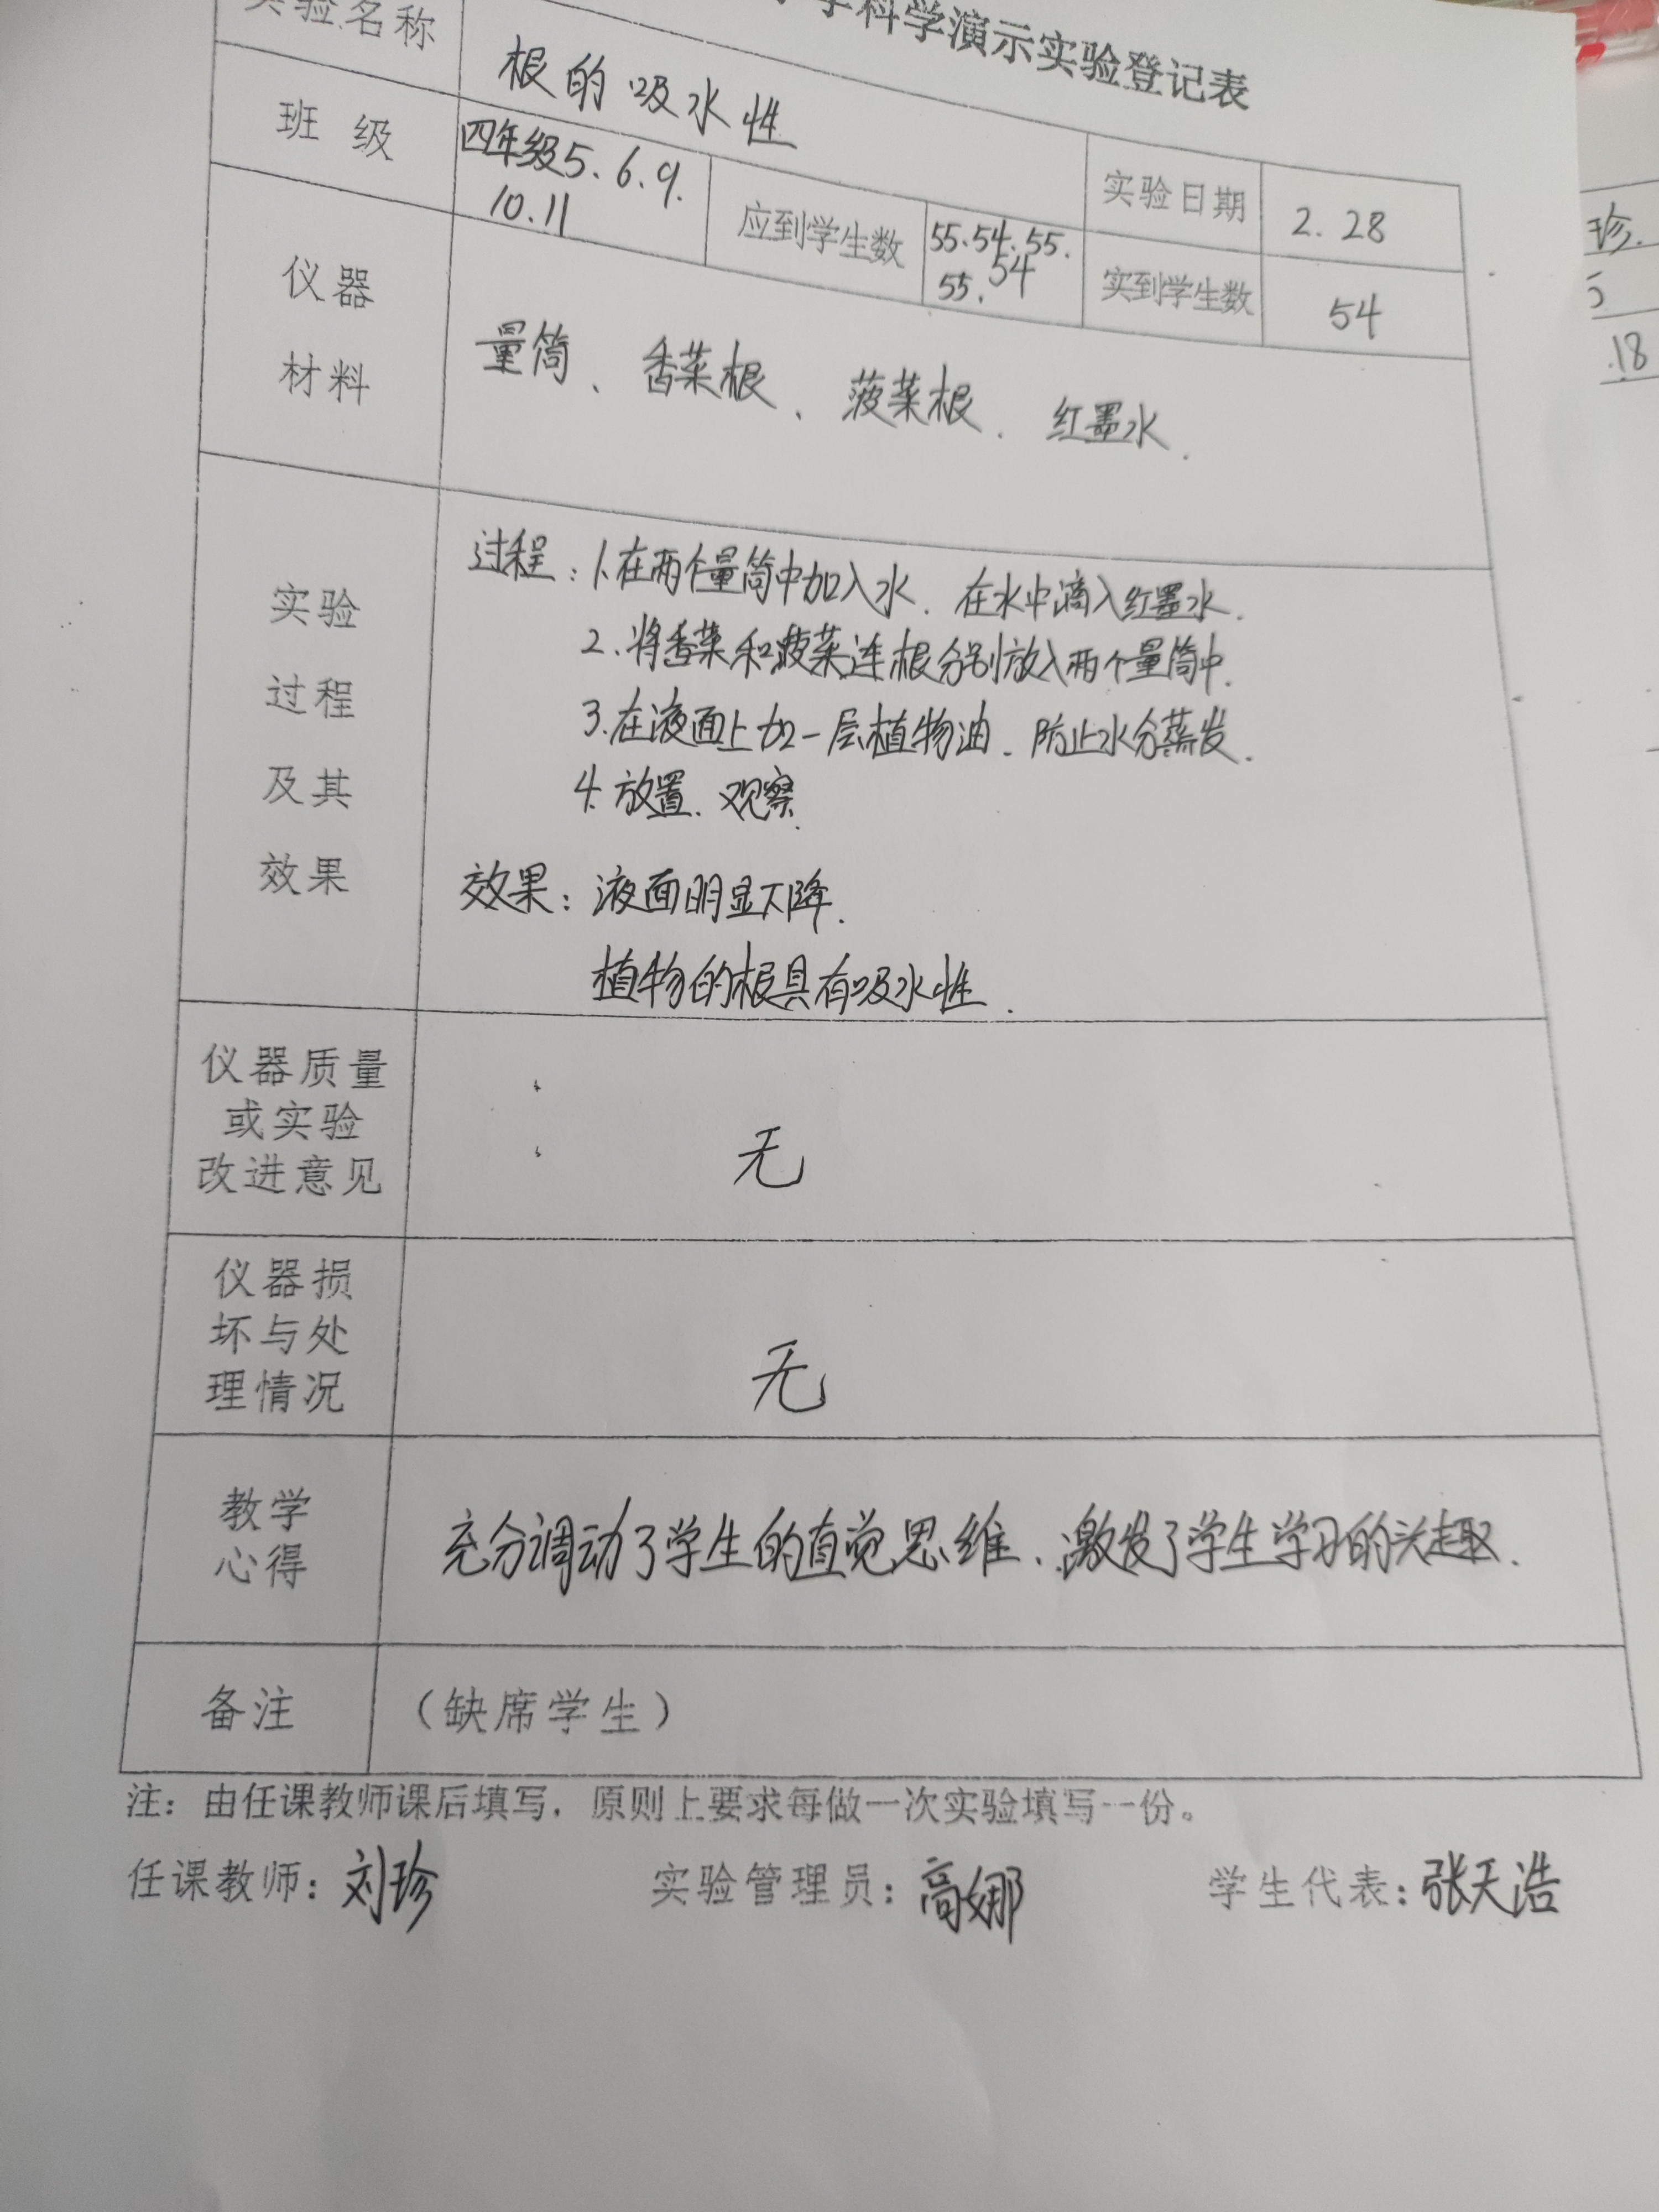 学科学演示实验登记表
实验名称
根的吸水性
实验日期
2.28
班级
四年级5.6.9.
10.11
应到学生数
55.54.55.
55.54
实到学生数
54
仪器
材料
量筒、香菜根、菠菜根.红墨水.
实验
过程
及其
效果
过程:1.在两个量筒中加入水.在水中滴入红墨水.
2.将香菜和菠菜连根分别放入两个量筒中.
3.在液面上加一层植物油.防止水分蒸发.
4.放置.观察.
效果:液面明显下降.
植物的根具有吸水性.
仪器质量
或实验
改进意见
无
仪器损
坏与处
理情况
无
教学
心得
充分调动了学生的直觉思维、激发了学生学习的兴趣.
备注
(缺席学生)
注:由任课教师课后填写,原则上要求每做一次实验填写一份。
任课教师:刘珍 实验管理员:高娜 学生代表:张天浩
珍.
5
.18